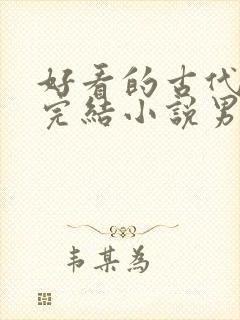 好看的古代
完結小說男
韦某為